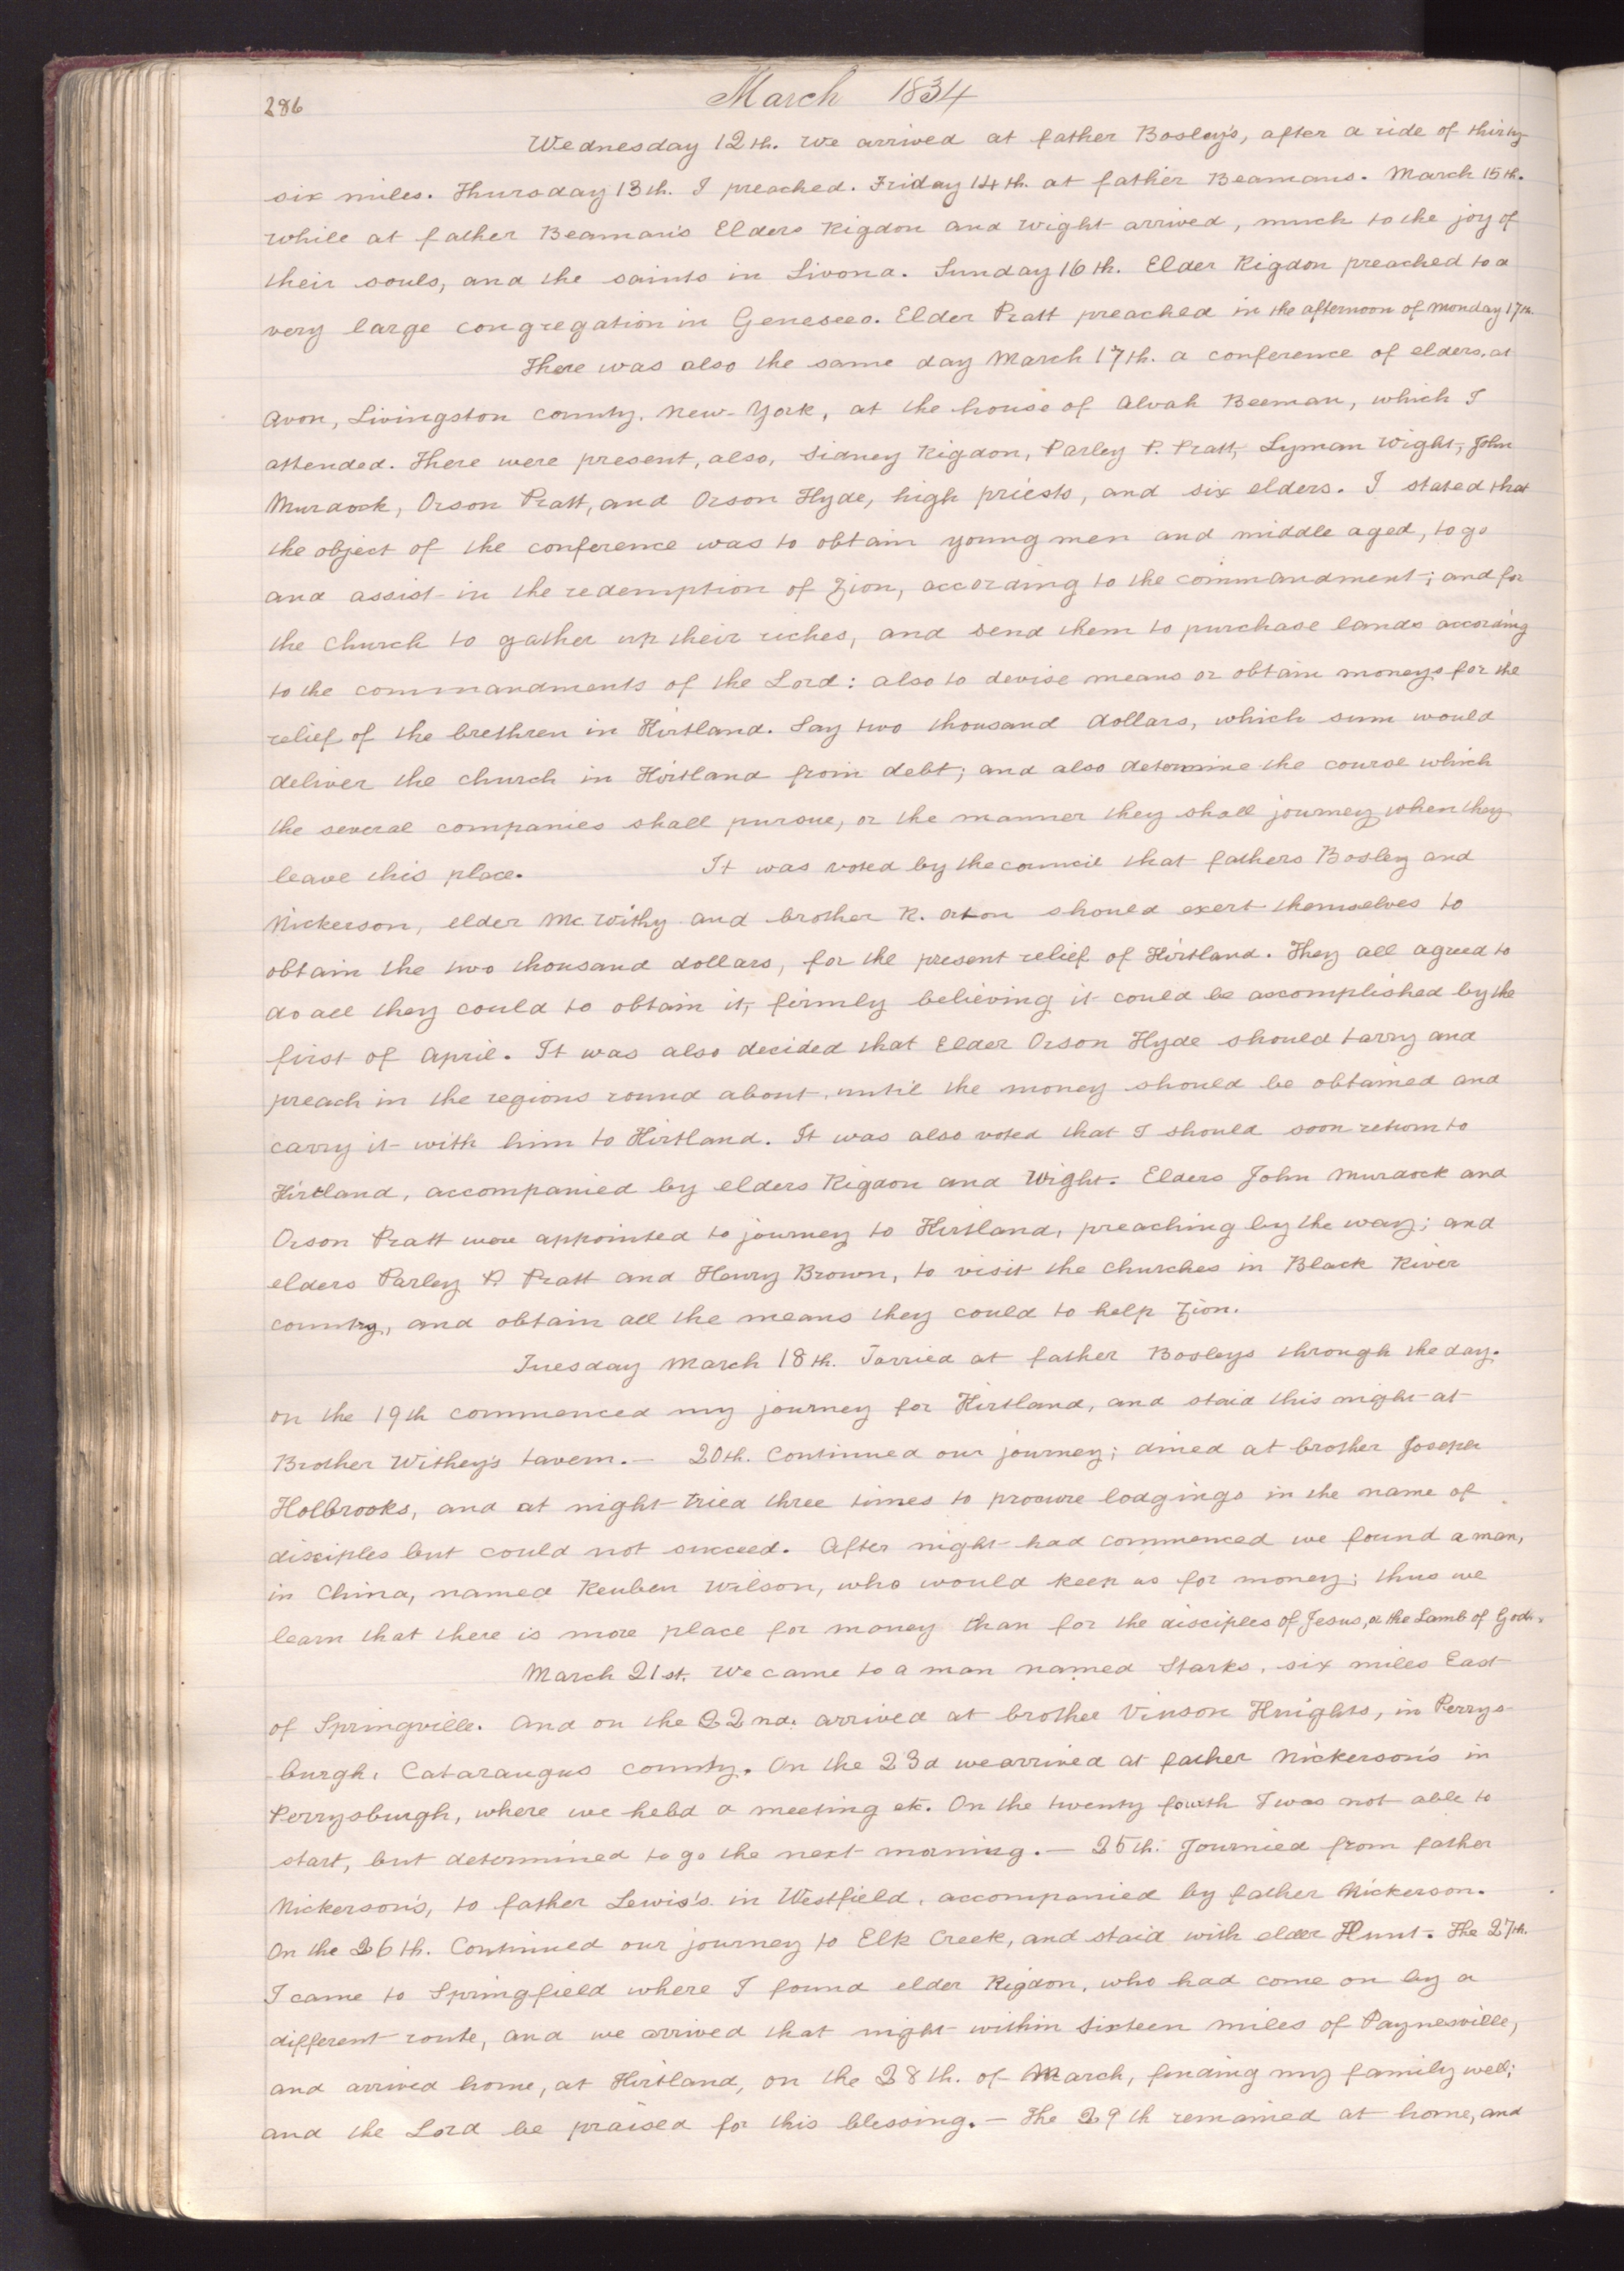 286
March 1834
Wednesday 12th. We arrived at father Bosley's, after a ride of thirty-
six miles. Thursday 13th. I preached. Friday 14th. at father Beamans. March 15th.
While at father Beaman's Elders Rigdon and Wight arrived, much to the joy of
their souls, and the saints in Livona. Sunday 16th. Elder Rigdon preached to a
very large congregation in Geneseeo. Elder Pratt preached in the afternoon of Monday 17th.
There was also the same day March 17th. a conference of elders, at
Avon, Livingston County. New-York, at the house of Alvah Beeman, which I
attended. There were present, also, Sidney Rigdon, Parley P. Pratt, Lyman Wight, John
Murdock, Orson Pratt, and Orson Hyde, high priests, and six elders. I stated that
the object of the conference was to obtain young men and middle aged, to go
and assist in the redemption of Zion, according to the commandment; and for
the Church to gather up their riches, and send them to purchase lands according
to the commandments of the Lord: also to devise means or obtain moneys for the
relief of the brethren in Kirtland. Say two thousand dollars, which sum would
deliver the church in Kirtland from debt; and also determine the course which
the several companies shall pursue, or the manner they shall journey when they
leave this place. It was voted by the council that fathers Bosley and
Nickerson, elder Mc.Withy and brother R. orton should exert themselves to
obtain the two thousand dollars, for the present relief of Kirtland. They all agreed to
do all they could to obtain it, firmly believing it could be accomplished by the
first of April. It was also decided that Elder Orson Hyde should tarry and
preach in the regions round about, until the money should be obtained and
carry it with him to Kirtland. It was also voted that I should soon return to
Kirtland, accompanied by elders Rigdon and Wight. Elders John Murdock and
Orson Pratt were appointed to journey to Kirtland, preaching by the way; and
elders Parley P. Pratt and Henry Brown, to visit the churches in Black River
country, and obtain all the means they could to help Zion.
Tuesday March 18th. Tarried at father Bosleys through the day.
on the 19th commenced my journey for Kirtland, and staid this night at
Brother Withey's tavern.— 20th. Continued our journey; dined at brother Joseph
Holbrooks, and at night tried three times to procure lodgings in the name of
disciples but could not succeed. After night had commenced we found a man,
in China, named Reuben Wilson, who would keep us for money; thus we
learn that there is more place for money than for the disciples of Jesus, or the Lamb of God.
March 21st. We came to a man named Starks, six miles East
of Springville. And on the 22nd. arrived at brother Vinson Knights, in Perrys-
burgh, Cataraugus county. On the 23d we arrived at father Nickerson's in
Perrysburgh, where we held a meeting etc. On the twenty fourth I was not able to
start, but determined to go the next morning.— 25th. Journied from father
Nickerson's, to father Lewis's in Westfield, accompanied by father Nickerson.
On the 26th. Continued our journey to Elk Creek, and staid with elder Hunt. The 27th.
I came to Springfield where I found elder Rigdon, who had come on by a
different route, and we arrived that night within sixteen miles of Paynesville,
and arrived home, at Kirtland, on the 28th. of March, finding my family well;
and the Lord be praised for this blessing.— The 29th remained at home, and